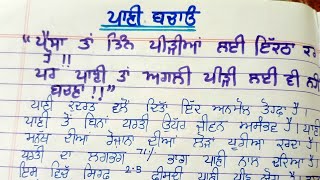 ਪਾਣੀ ਬਚਾਓ
“ ਪੈਸਾ ਤਾਂ ਤਿੰਨ ਪੀੜੀਆਂ ਲਈ ਇੱਕਠਾ ਕਰ
ਤੇ !!
ਪਰ ਪਾਣੀ ਤਾਂ ਅਗਲੀ ਪੀੜੀ ਲਈ ਵੀ ਨਹੀਂ
ਬਚਣਾ !! ”
ਪਾਣੀ ਕੁਦਰਤ ਵਲੋਂ ਦਿੱਤਾ ਇੱਕ ਅਨਮੋਲ ਤੋਹਫ਼ਾ ਹੈ ।
ਪਾਣੀ ਤੋਂ ਬਿਨਾਂ ਧਰਤੀ ਉੱਪਰ ਜੀਵਨ ਅਸੰਭਵ ਹੈ । ਪਾਣੀ
ਮਨੁੱਖ ਦੀਆਂ ਰੋਜ਼ਾਨਾ ਦੀਆਂ ਲੋੜਾਂ ਪੂਰੀਆਂ ਕਰਦਾ ਹੈ ।
ਧਰਤੀ ਦਾ ਲਗਭਗ 71% ਭਾਗ ਪਾਣੀ ਨਾਲ ਘਿਰਿਆ ਹੈ ।
ਇਸ ਵਿੱਚੋਂ ਸਿਰਫ਼ 2-5 ਫ਼ੀਸਦੀ ਪਾਣੀ ਪੀਣ